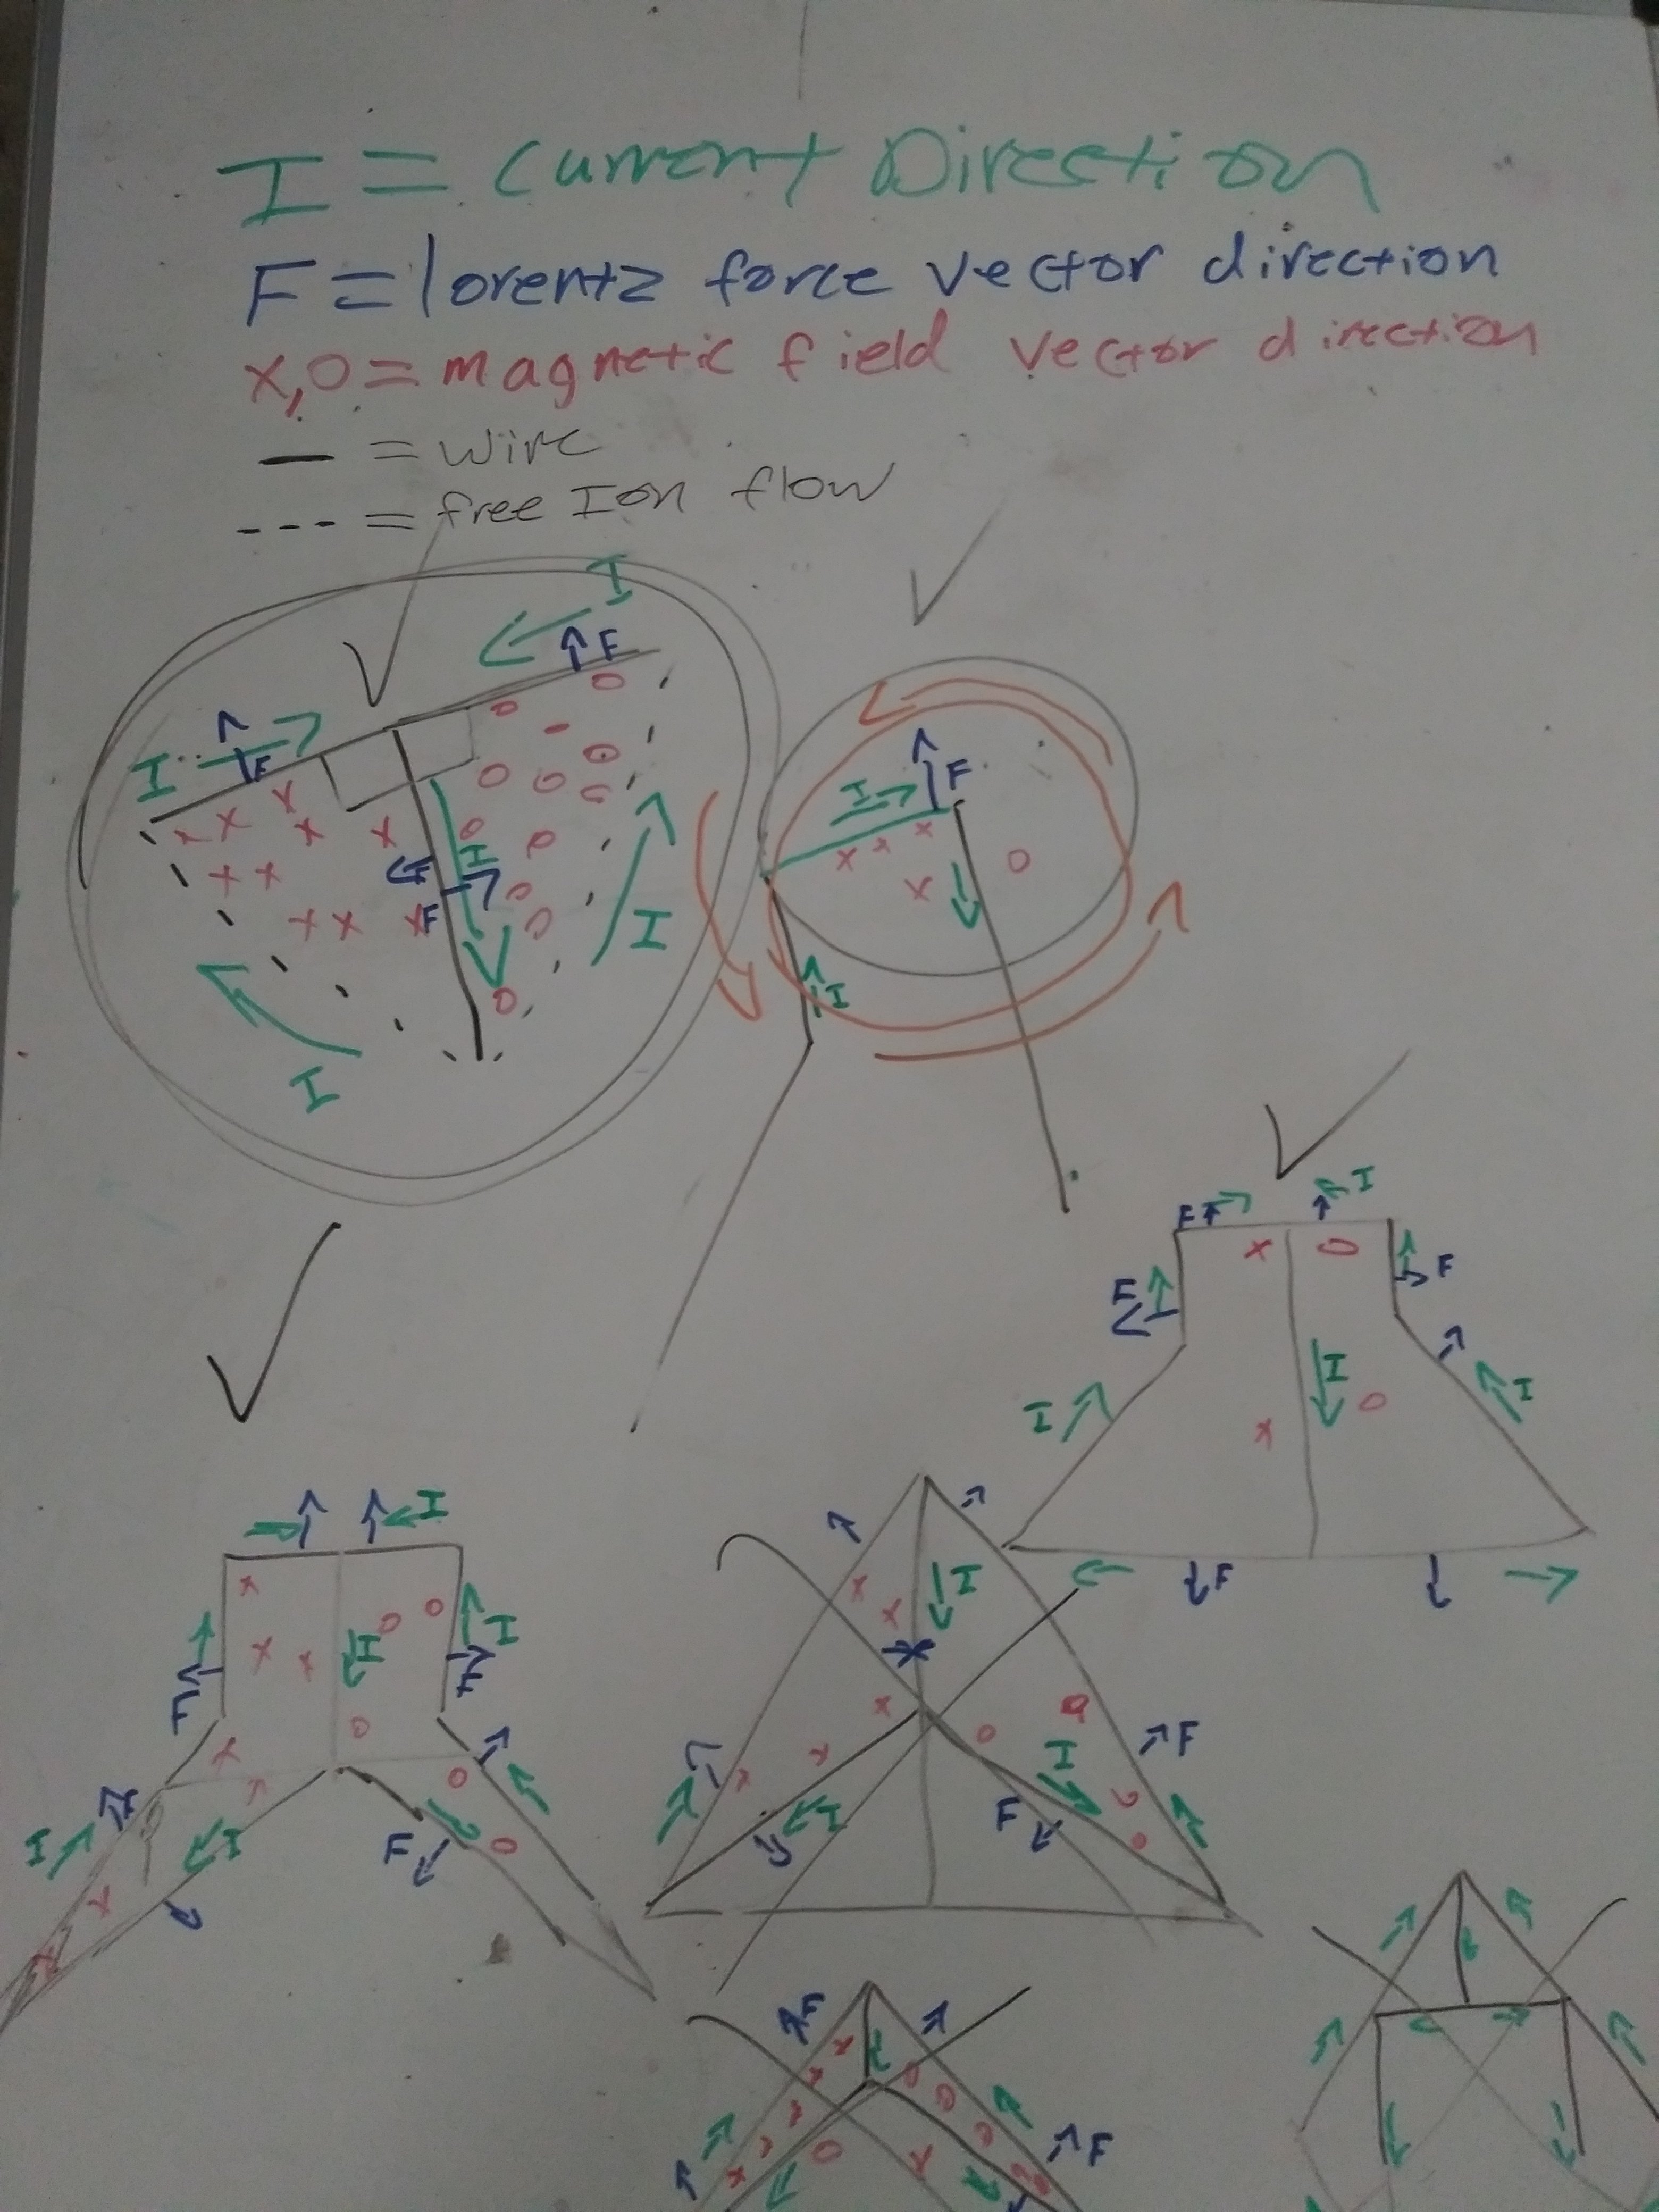 I = Current Direction
F = lorentz force vector direction
x,o = magnetic field vector direction
— = wire
--- = free Ion flow
I
F
I
F
I
F
F
I
I
I
F
I
I
I
F
F
F
I
I
I
F
I
I
I
F
F
I
F
I
I
F
I
F
I
I
F
F
F